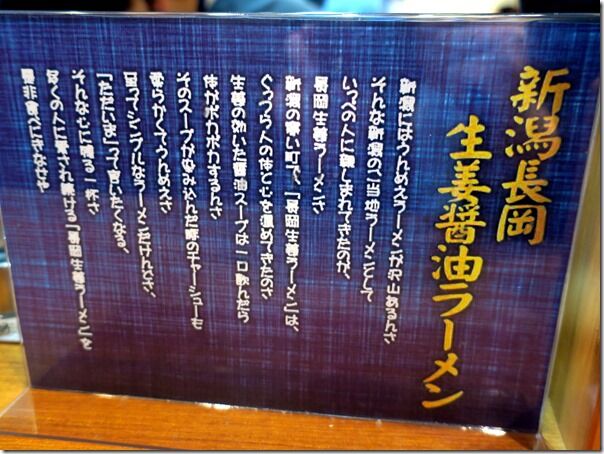 新潟長岡
生姜醤油ラーメン
新潟にはうんめえラーメンが沢山あるんさ
そんな新潟のご当地ラーメンとして
いっぺの人に親しまれてきたのが、
長岡生姜ラーメンさ
新潟の寒い町で、「長岡生姜ラーメン」は、
ぐっつらんの体と心を温めてきたのさ
生姜の効いた醤油スープは一口飲んだら
体がポカポカするんさ
そのスープが染み込んだ豚のチャーシューも
柔らかくてうんめえさ
至ってシンプルなラーメンだけんどさ、
「ただいま」って言いたくなる、
そんな心に響る一杯さ
多くの人に愛され続ける「長岡生姜ラーメン」を
是非食べにきなせや